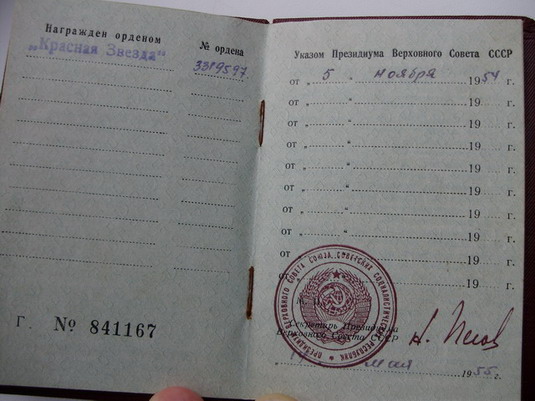 Награжден орденом
№ ордена
„Красная Звезда”
3319597
Г. № 841167
Указом Президиума Верховного Совета СССР
от „ 5 “ ноября 1954 г.
от „ “ 19 г.
от „ “ 19 г.
от „ “ 19 г.
от „ “ 19 г.
от „ “ 19 г.
от „ “ 19 г.
от „ “ 19 г.
от „ “ 19 г.
от 19 г.
ПРЕЗИДИУМ ВЕРХОВНОГО СОВЕТА СОЮЗА СОВЕТСКИХ СОЦИАЛИСТИЧЕСКИХ РЕСПУБЛИК
Секретарь Президиума
Верховного Совета СССР
мая 1955 г.